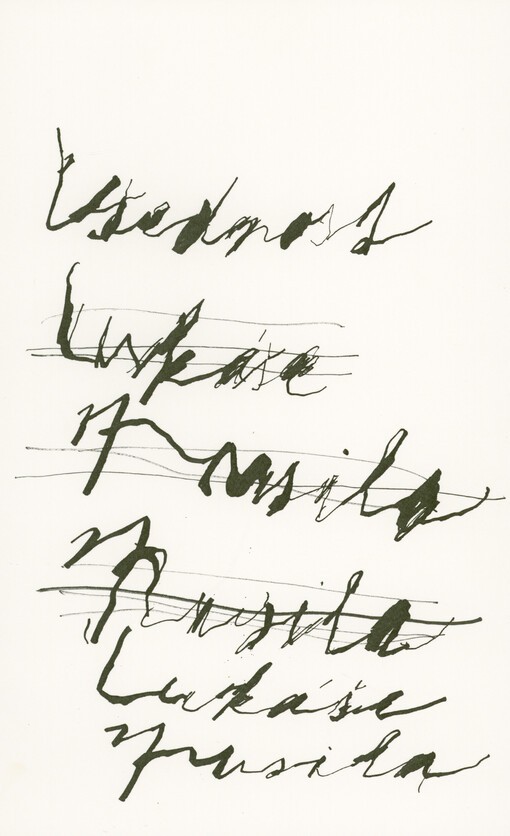 Všednost
Lukáše
Musila
Musila
Lukáše
Musila